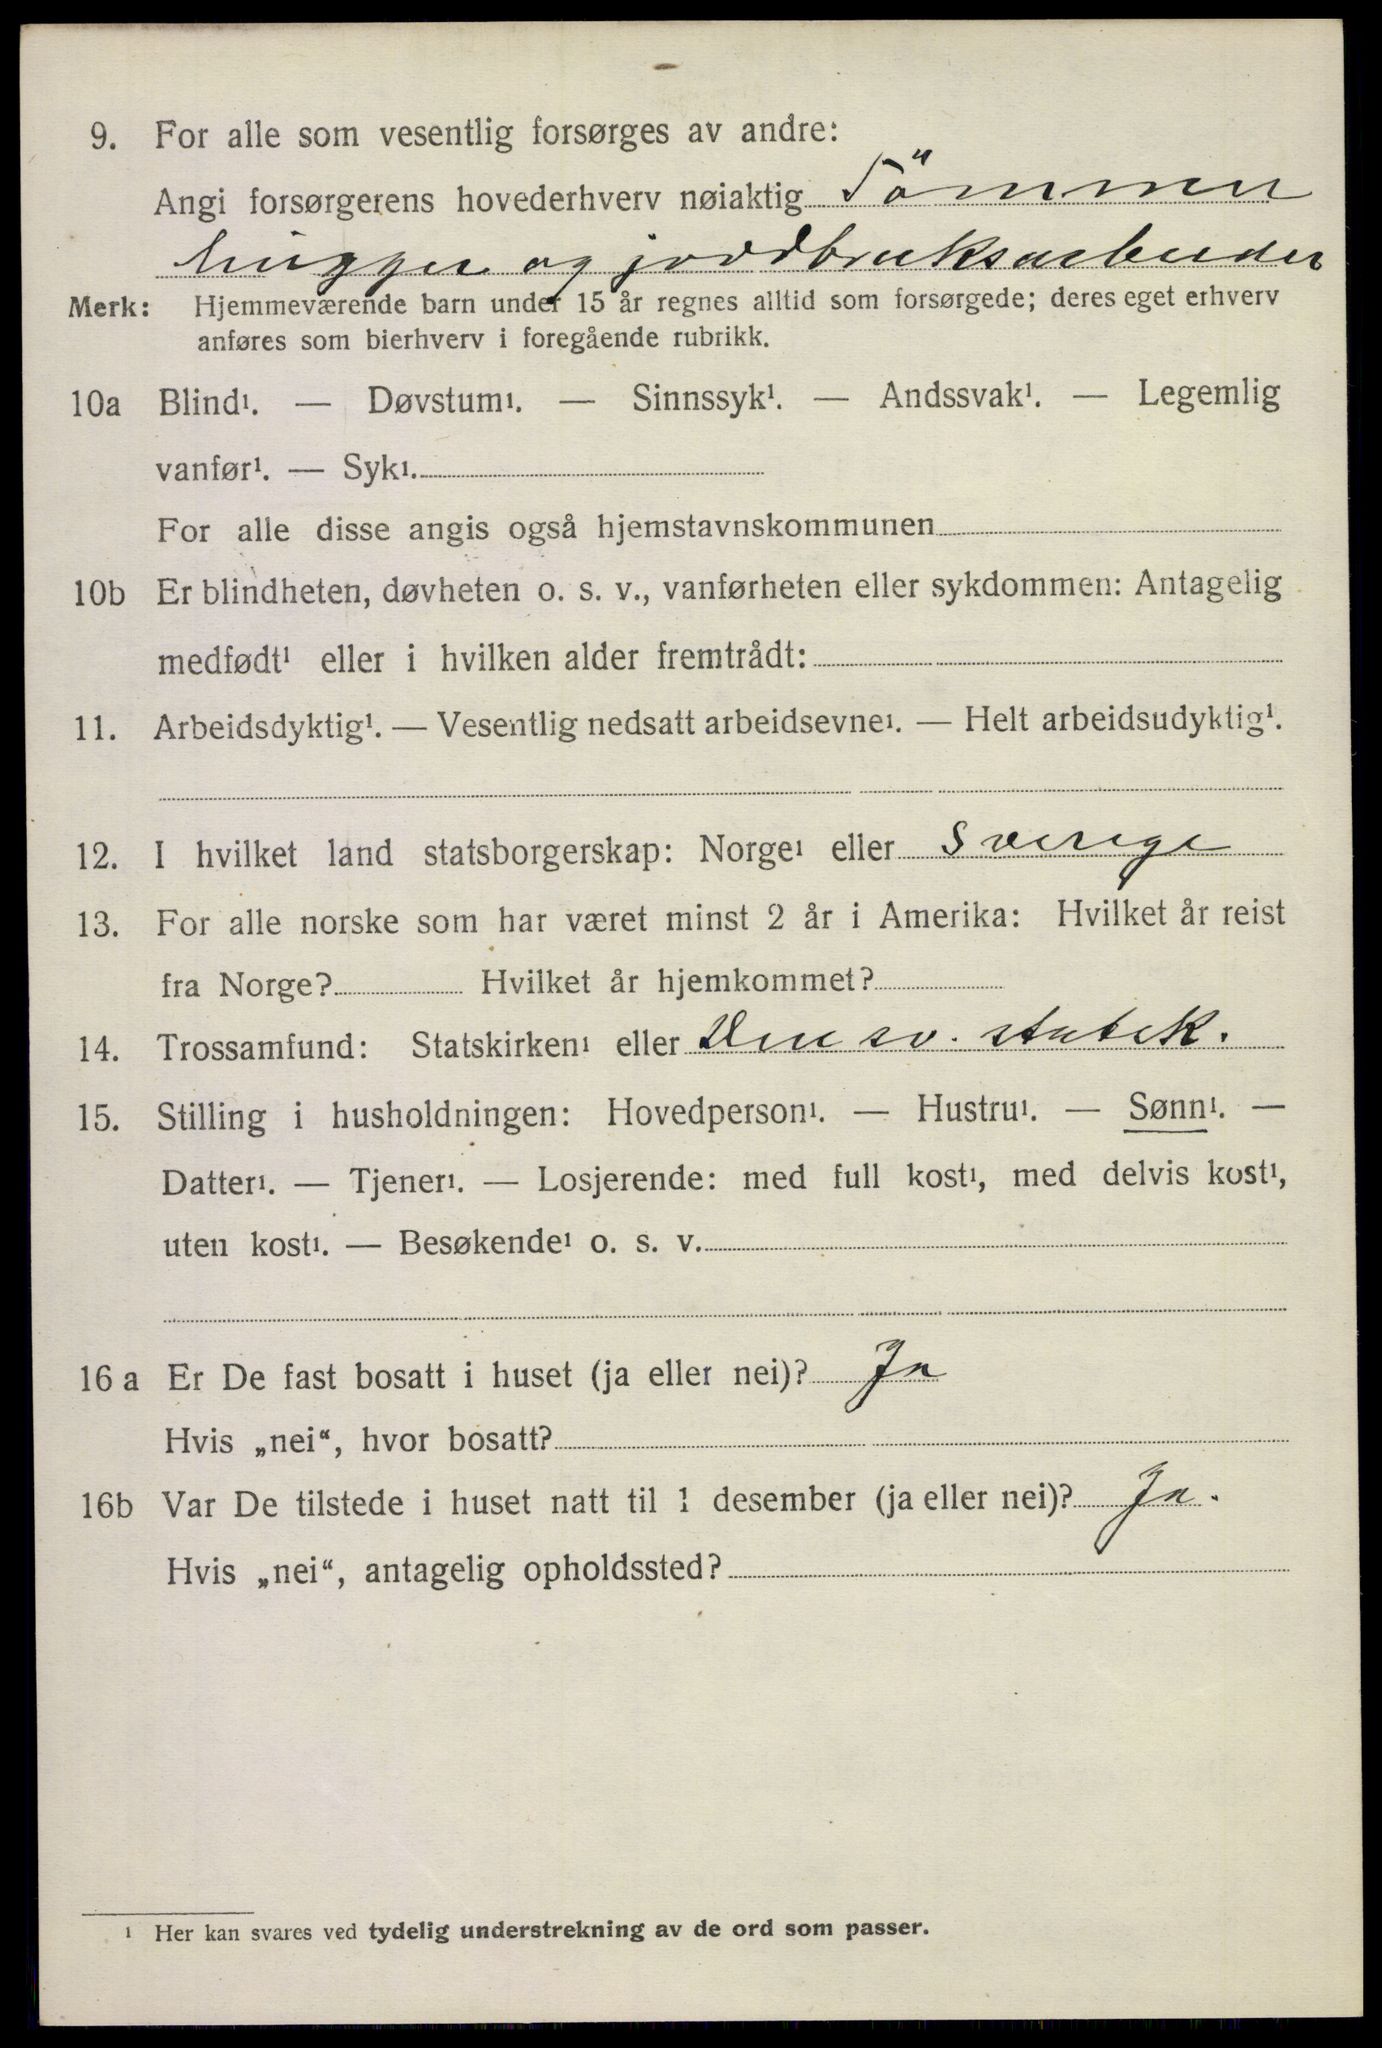 9. For alle som vesentlig forsørges av andre:
Angi forsørgerens hovederhverv nøiaktig Tömmer
hugger og jordbruksarbeider
Merk: Hjemmeværende barn under 15 år regnes alltid som forsørgede; deres eget erhverv
anføres som bierhverv i foregående rubrikk.
10a Blind¹. — Døvstum¹. — Sinnssyk¹. — Andssvak¹. — Legemlig
vanfør¹. — Syk¹.
For alle disse angis også hjemstavnskommunen
10b Er blindheten, døvheten o. s. v., vanførheten eller sykdommen: Antagelig
medfødt¹ eller i hvilken alder fremtrådt:
11. Arbeidsdyktig¹. — Vesentlig nedsatt arbeidsevne¹. — Helt arbeidsudyktig¹.
12. I hvilket land statsborgerskap: Norge¹ eller Sverige
13. For alle norske som har været minst 2 år i Amerika: Hvilket år reist
fra Norge? Hvilket år hjemkommet?
14. Trossamfund: Statskirken¹ eller Den sv. statsk.
15. Stilling i husholdningen: Hovedperson¹. — Hustru¹. — Sønn¹. —
Datter¹. — Tjener¹. — Losjerende: med full kost¹, med delvis kost¹,
uten kost¹. — Besøkende¹ o. s. v.
16 a Er De fast bosatt i huset (ja eller nei)? Ja
Hvis „nei“, hvor bosatt?
16b Var De tilstede i huset natt til 1 desember (ja eller nei)? Ja.
Hvis „nei“, antagelig opholdssted?
¹ Her kan svares ved tydelig understrekning av de ord som passer.